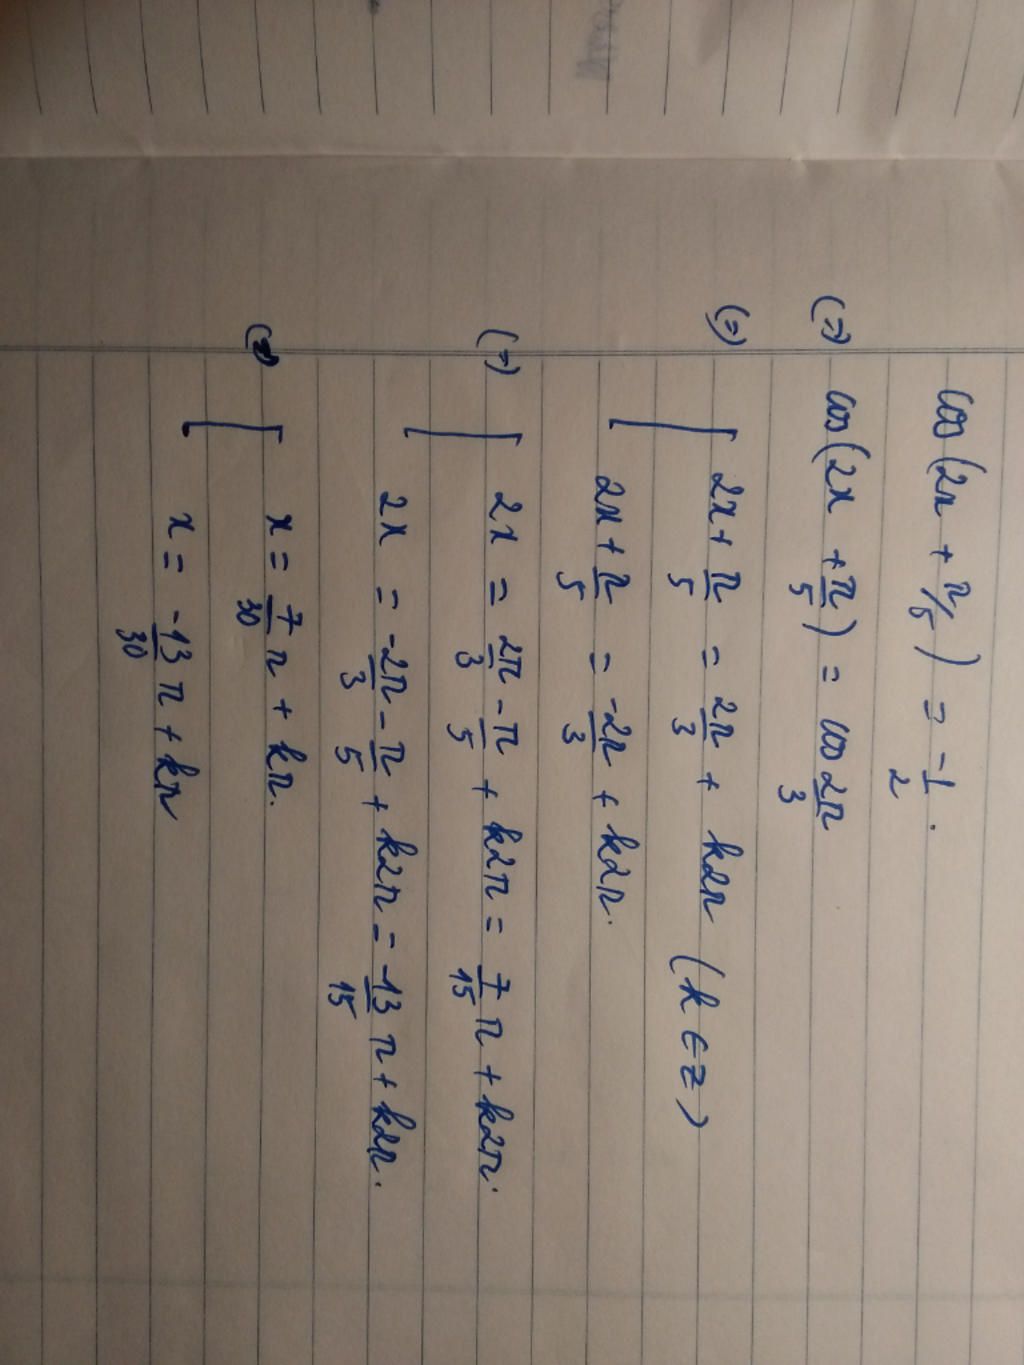 cos (2x + π/5) = -1/2.
(=) cos(2x + π/5) = cos 2π/3
(=) [ 2x + π/5 = 2π/3 + k2π (k ∈ Z)
2x + π/5 = -2π/3 + k2π.
(=) [ 2x = 2π/3 - π/5 + k2π = 7/15 π + k2π.
2x = -2π/3 - π/5 + k2π = -13/15 π + k2π.
(=) [ x = 7/30 π + kπ.
x = -13/30 π + kπ